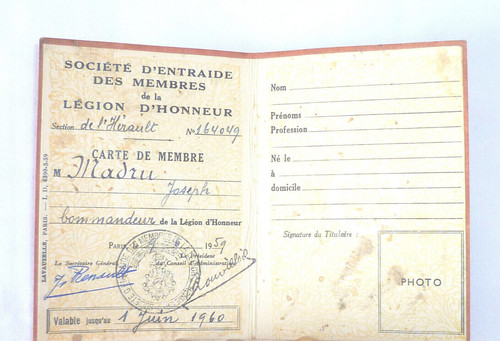 SOCIÉTÉ D'ENTRAIDE
DES MEMBRES
de la
LÉGION D'HONNEUR
Section de l'Hérault N° 164049
CARTE DE MEMBRE
M Madru
Joseph
Commandeur de la Légion d'Honneur
PARIS, 1959
Le Secrétaire Général Le Président
du Conseil d'Administration
Valable jusqu'au 1 Juin 1960
LAVAUZELLE, PARIS.
Nom
Prénoms
Profession
Né le
à
domicile
Signature du Titulaire :
PHOTO